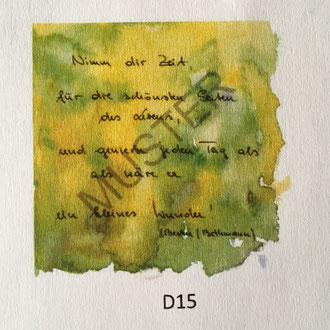 Nimm dir Zeit
für die schönsten Seiten
des Lebens,
und genieße jeden Tag als
als wäre er
ein kleines Wunder!
(Beate / Bethmann)
MUSTER
D15